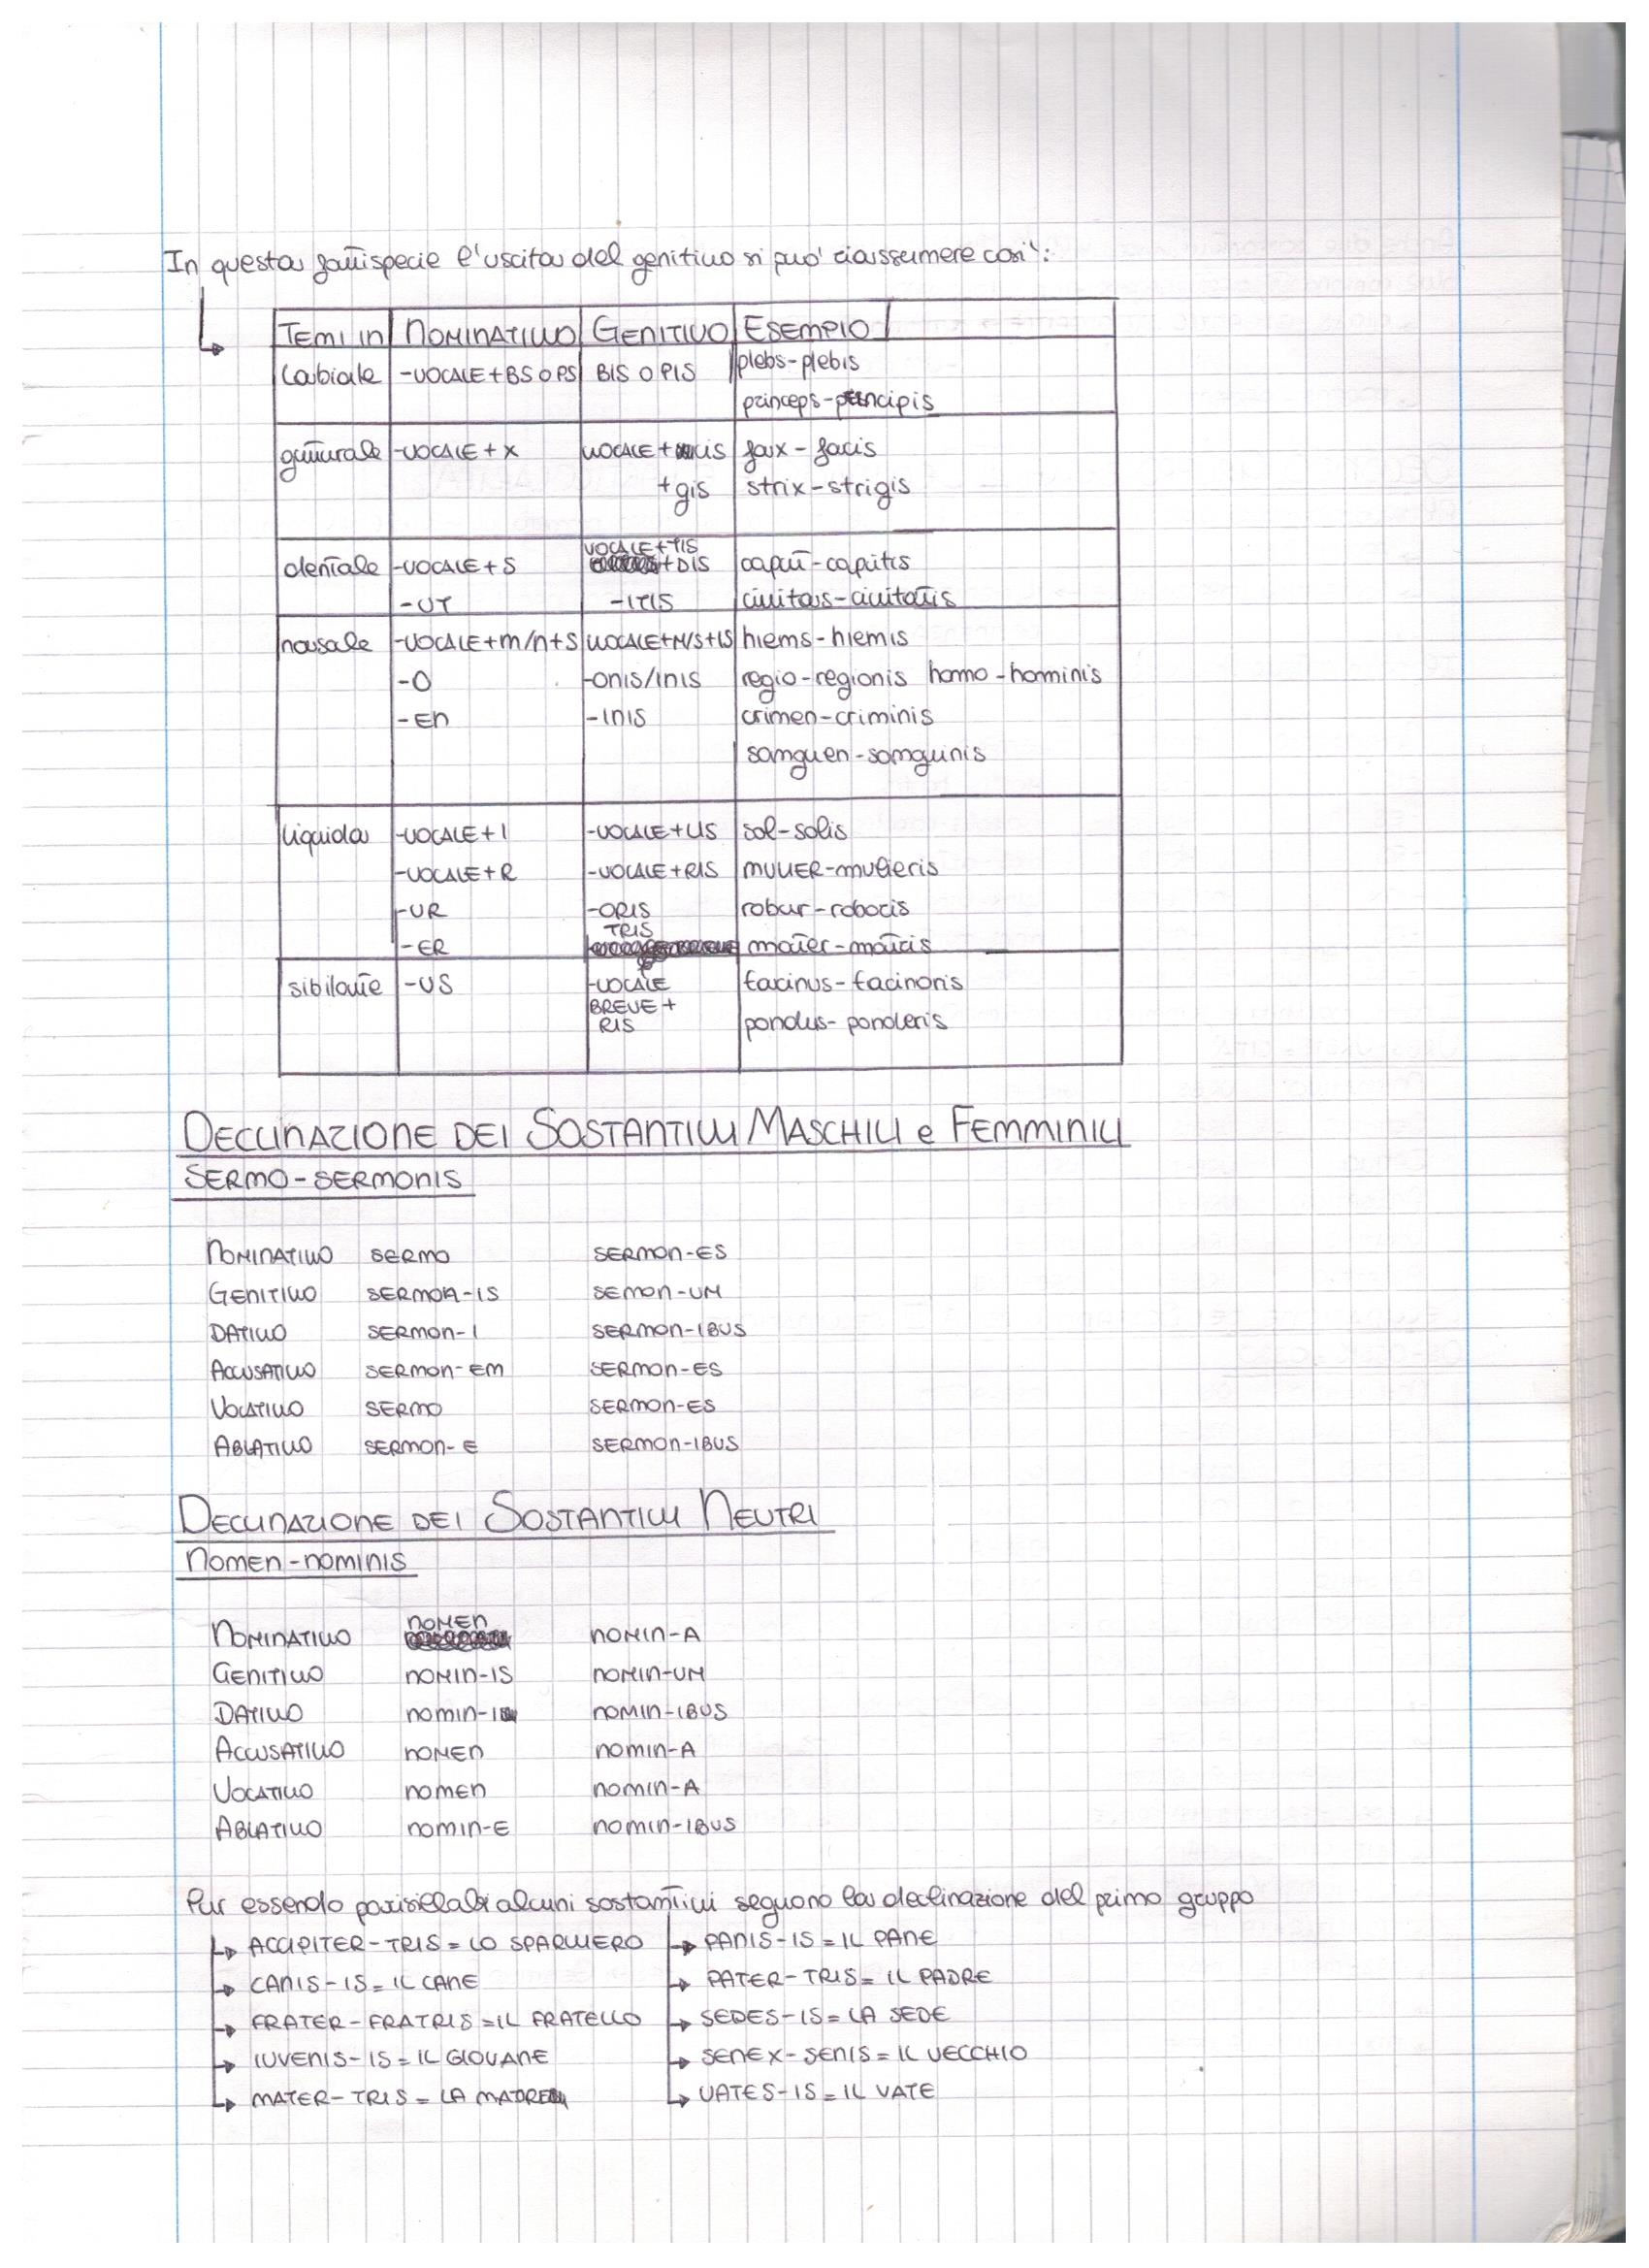 In questa fattispecie l'uscita del genitivo si può riassumere così:
TEMI IN NOMINATIVO GENITIVO ESEMPIO
labiale -VOCALE+BS O PS BIS O PIS plebs-plebis
princeps-principis
gutturale -VOCALE+X VOCALE+cis fax-facis
+gis strix-strigis
dentale -VOCALE+S VOCALE+TIS +DIS caput-capitis
-UT -ITIS civitas-civitatis
nasale -VOCALE+m/n+S VOCALE+N/S+IS hiems-hiemis
-O -onis/inis regio-regionis homo-hominis
-En -inis crimen-criminis
sanguen-sangunis
liquida -VOCALE+l -VOCALE+LIS sol-solis
-VOCALE+R -VOCALE+RIS MULIER-mulieris
-UR -ORIS robur-roboris
-ER TRIS mater-matris
sibilante -US -VOCALE BREVE+ RIS facinus-facinoris
pondus-ponderis
DECLINAZIONE DEI SOSTANTIVI MASCHILI e FEMMINILI
SERMO-SERMONIS
NOMINATIVO SERMO SERMON-ES
GENITIVO SERMON-IS SEMON-UM
DATIVO SERMON-I SERMON-IBUS
ACCUSATIVO SERMON-EM SERMON-ES
VOCATIVO SERMO SERMON-ES
ABLATIVO SERMON-E SERMON-IBUS
DECLINAZIONE DEI SOSTANTIVI NEUTRI
Nomen-nominis
NOMINATIVO NOMEN NOMIN-A
GENITIVO NOMIN-IS NOMIN-UM
DATIVO NOMIN-I NOMIN-IBUS
ACCUSATIVO NOMEN NOMIN-A
VOCATIVO NOMEN NOMIN-A
ABLATIVO NOMIN-E NOMIN-IBUS
Pur essendo parisillabi alcuni sostantivi seguono la declinazione del primo gruppo
ACCIPITER-TRIS=LO SPARVIERO PANIS-IS=IL PANE
CANIS-IS=IL CANE PATER-TRIS=IL PADRE
FRATER-FRATRIS=IL FRATELLO SEDES-IS=LA SEDE
IUVENIS-IS=IL GIOVANE SENEX-SENIS=IL VECCHIO
MATER-TRIS=LA MADRE VATES-IS=IL VATE